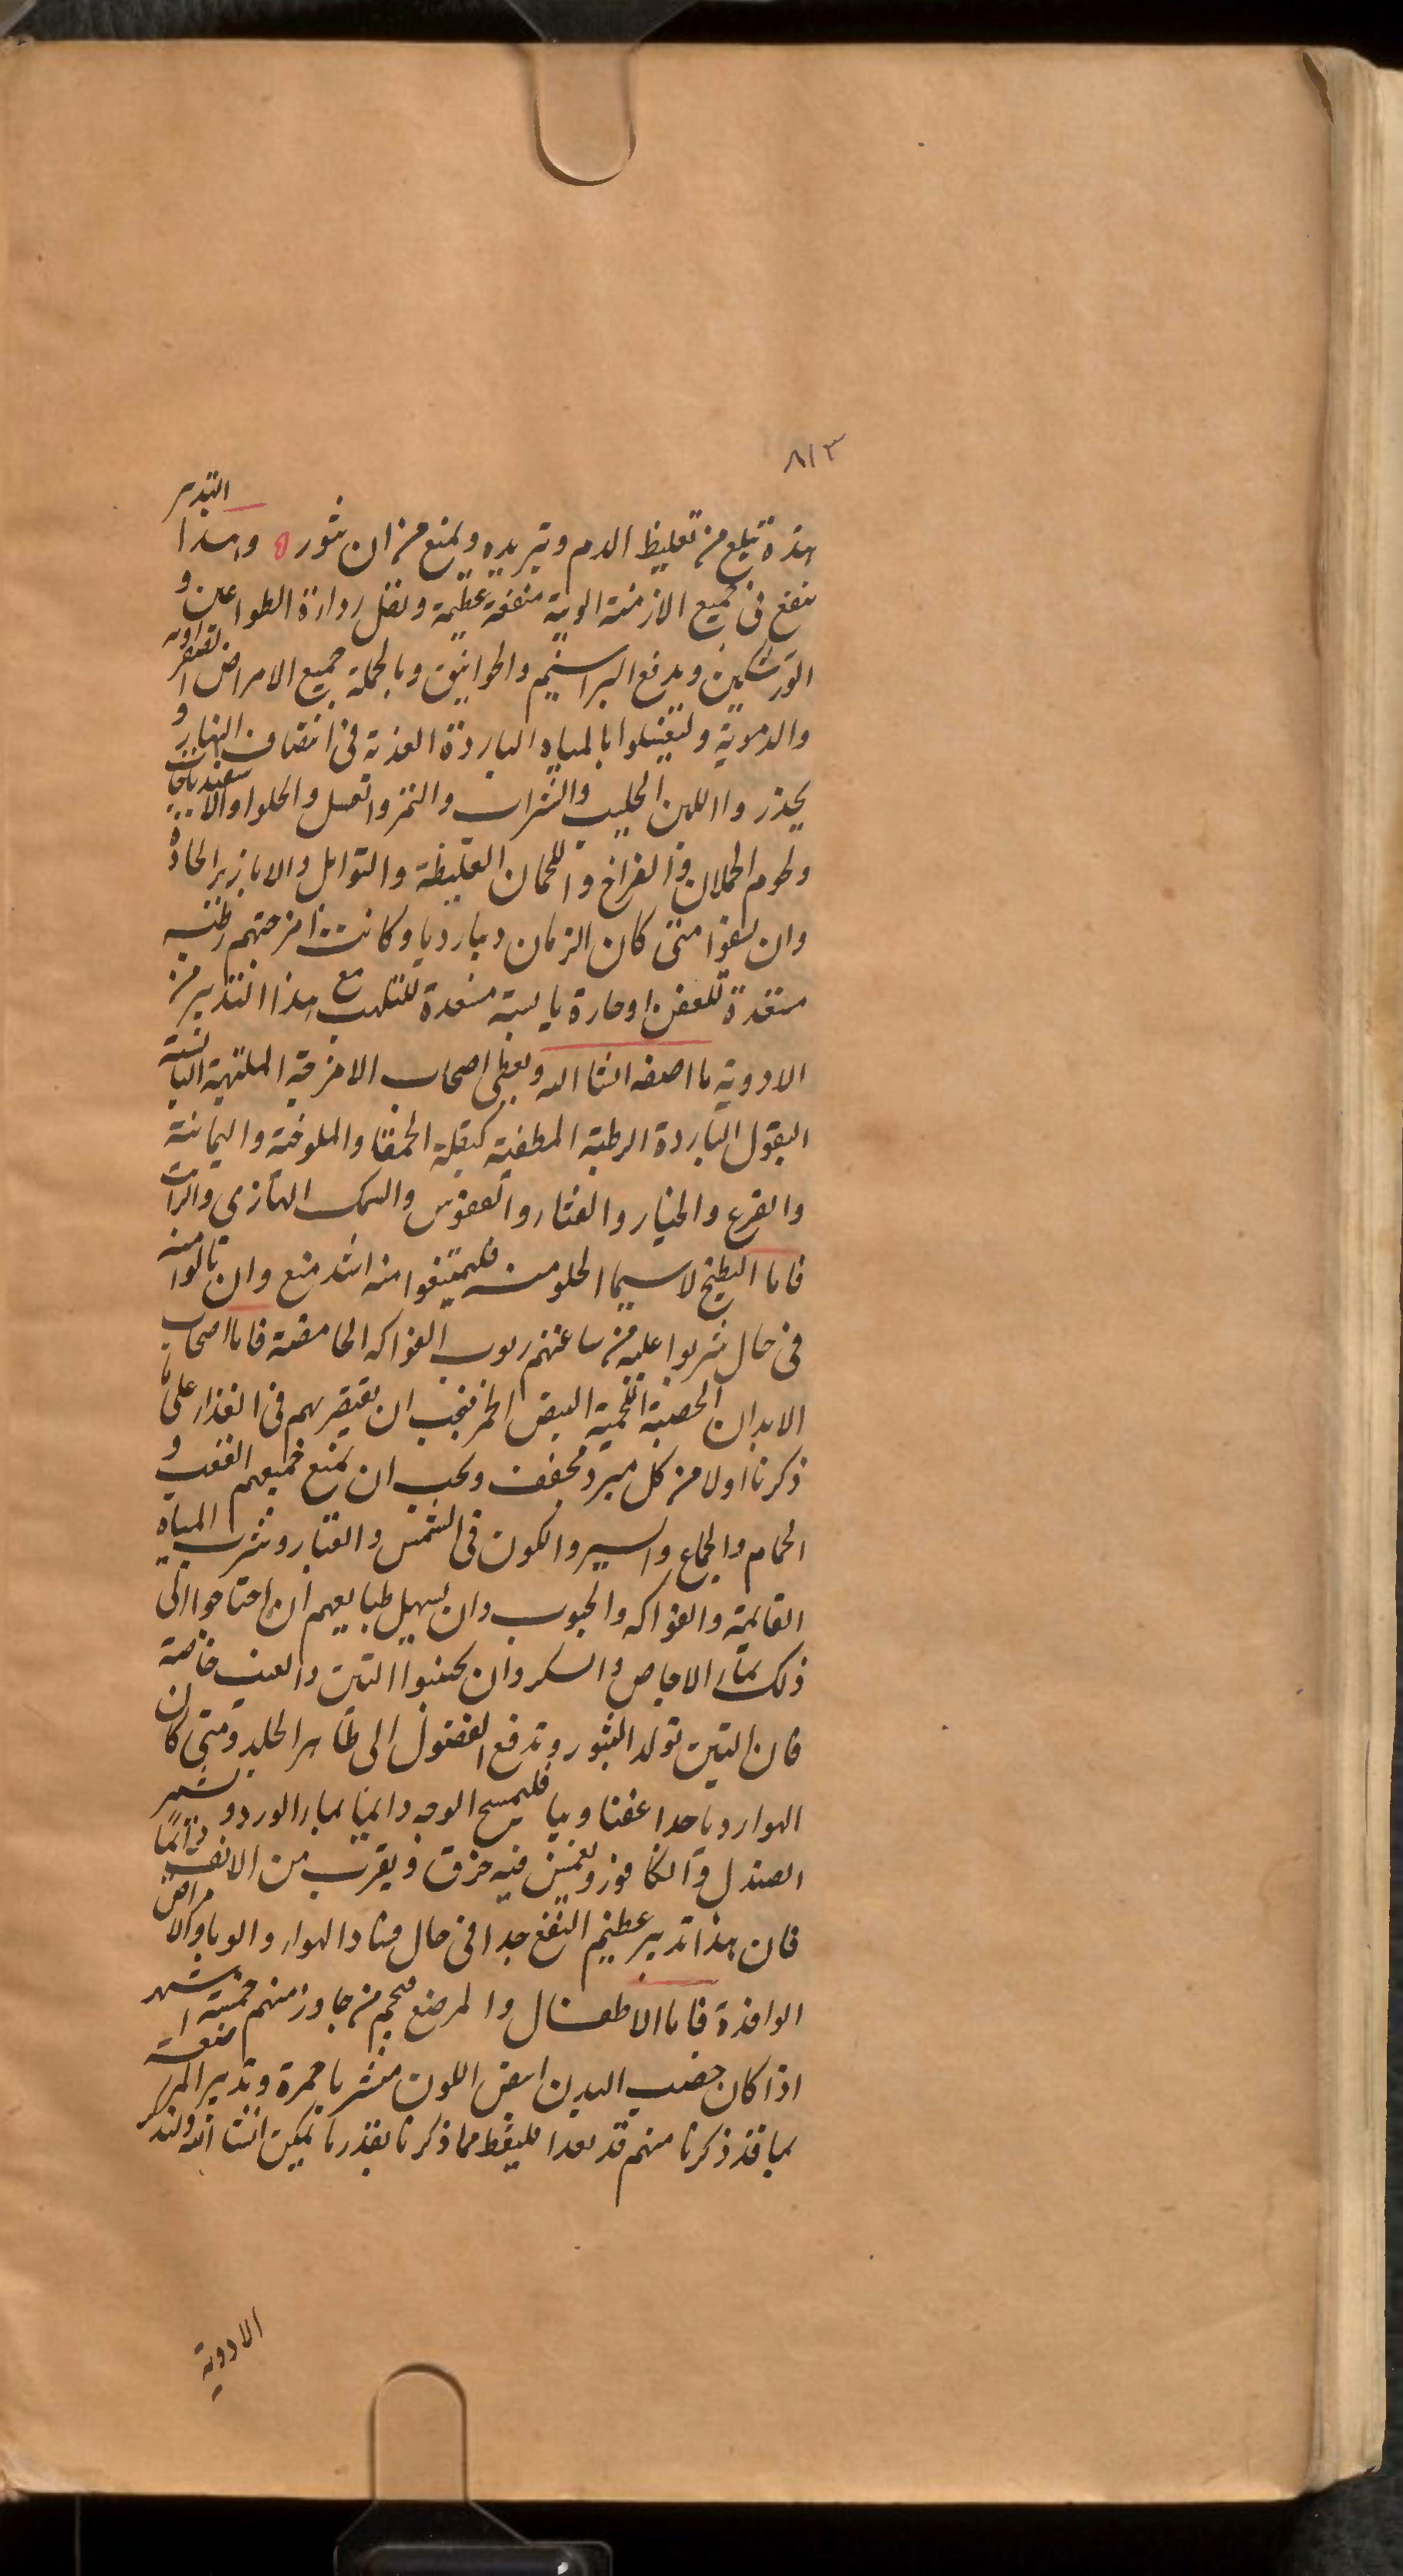 ٨١٣
هذه تبلغ من تغليظ الدم وتبريده ويمنع من ان يثور وهذا التدبير
ينفع فى جميع الازمنة الوبية منفعة عظيمة ويقل رداءة الطواعين و
ويدفع البراسيم والخوانيق وبالجملة جميع الامراض الصفراويه
والدموية وليغتسلوا بالمياه الباردة العذبة فى انتصاف النهار و
يحذروا اللبن الحليب والشراب والتمر والعسل والحلوا والاسفيدباجات
ولحوم الحملان والفراخ واللحمان الغليظة والتوابل والابازير الحادة
وان يسقوا متى كان الزمان وباردبا وكانت امزجتهم رطبه
مستعدة للعفن او حارة يابسة مستعدة للتلهب مع هذا التدبير من
الادوية ما اصفه انشا الله ويعطى اصحاب الامزجة الملتهبة اليابسة
البقول الباردة الرطبة المطفية كبقلة الحمقا والملوخية واليمانية
والقرع والخيار والقثاء والعقوس والسمك الهازبى والرائب
فاما البطيخ لاسيما الحلو منه فليمتنعوا منه اشد منع وان نالوا منه
فى حال شربوا عليه من ساعتهم ربوب الفواكه الحامضة فاما اصحاب
الابدان الخصبة اللحمية البيض الحمر فيجب ان يقتصر بهم فى الغذاء على ما
ذكرنا اولا من كل مبرد مجفف ويجب ان يمنع جميعهم التعب و
الحمام والجماع والسير والكون فى الشمس والغبار وشرب المياه
القائمة والفواكه والحبوب وان يسهل طبايعهم ان احتاجوا الى
ذلك بماء الاجاص والسكر وان يجتنبوا التين والعنب خاصة
فان التين تولد البثور وتدفع الفضول الى ظاهر الجلد ومتى كان
الهواء رديا جدا عفنا وبيا فليمسح الوجه دايما بماء الورد و يشمر
الصندل والكافور ويغمس فيه خرق ويقرب من الانف دائمًا
فان هذا تدبير عظيم النفع جدا فى حال فساد الهواء والوبا والامراض
الوافدة فاما الاطفال والمرضع فحجم من جاوز منهم خمسة اشهر
اذا كان خصب البدن ابيض اللون مشربا حمرة وتدبير المرضعة
بما قد ذكرنا منهم قد بعدا فليعط مما ذكرنا بقدر ما يمكن انشا الله ولنذكر
الادوية